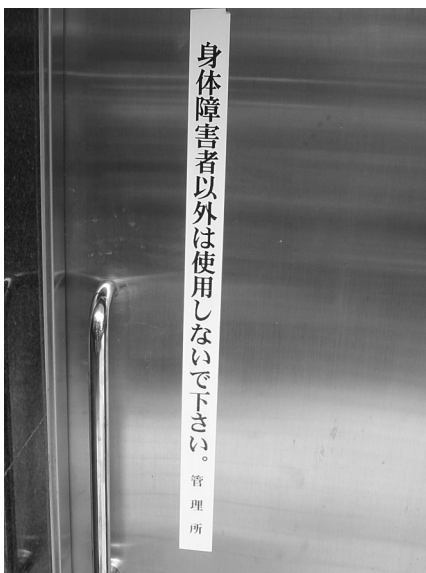 身体障害者以外は使用しないで下さい。管理所